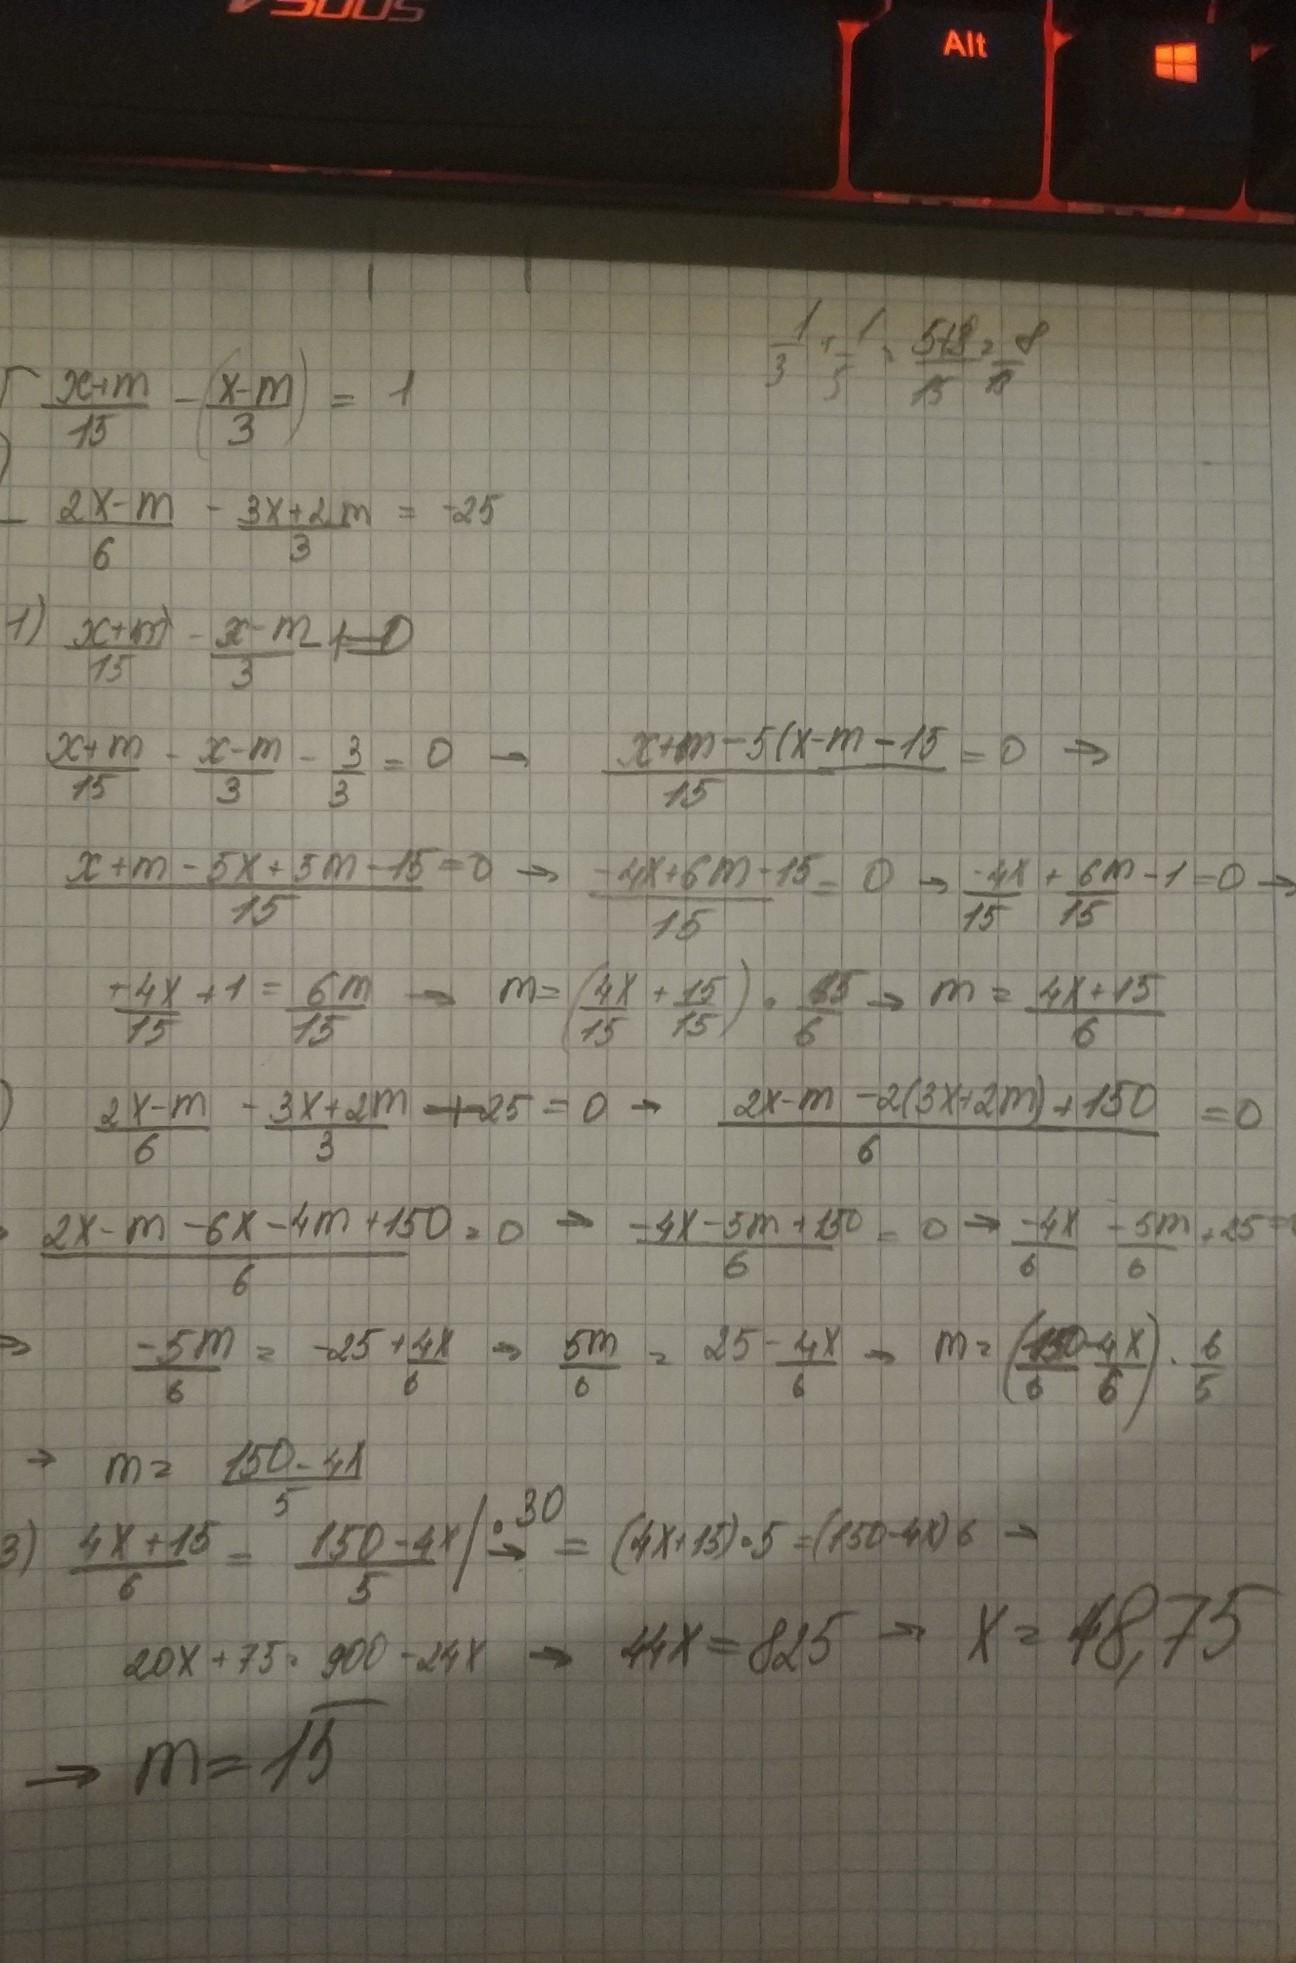 Alt
1/3 + 1/5 = 5+3/15 = 8/15
x+m/15 - (x-m/3) = 1
2x-m/6 - 3x+2m/3 = -25
1) x+m/15 - x-m/3 - 1 = 0
x+m/15 - x-m/3 - 3/3 = 0 → x+m-5(x-m-15/15 = 0 →
x+m-5x+5m-15/15 = 0 → -4x+6m-15/15 = 0 → -4x/15 + 6m/15 - 1 = 0 →
+4x/15 + 1 = 6m/15 → m = (4x/15 + 15/15) · 15/6 → m = 4x+15/6
) 2x-m/6 - 3x+2m/3 + 25 = 0 → 2x-m-2(3x+2m)+150/6 = 0
2x-m-6x-4m+150/6 = 0 → -4x-5m+150/6 = 0 → -4x/6 -5m/6 + 25 =
→ -5m/6 = -25 + 4x/6 → 5m/6 = 25 - 4x/6 → m = (150/6 - 4x/6) · 6/5
→ m = 150-4x/5
3) 4x+15/6 = 150-4x/5 / ·30 → = (4x+15)·5 = (150-4x)6 →
20x+75 = 900-24x → 44x = 825 → x = 18,75
→ m = 15